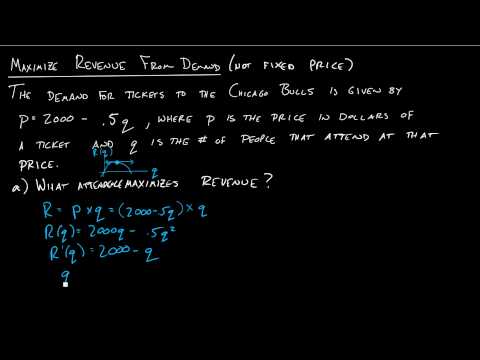 MAXIMIZE REVENUE FROM DEMAND (NOT FIXED PRICE)
THE DEMAND FOR TICKETS TO THE CHICAGO BULLS IS GIVEN BY
P = 2000 - .5q, WHERE P IS THE PRICE IN DOLLARS OF
A TICKET AND q IS THE # OF PEOPLE THAT ATTEND AT THAT
PRICE.
R(q)
q
a) WHAT ATTENDANCE MAXIMIZES REVENUE?
R = P × q = (2000-.5q) × q
R(q) = 2000q - .5q²
R'(q) = 2000 - q
q